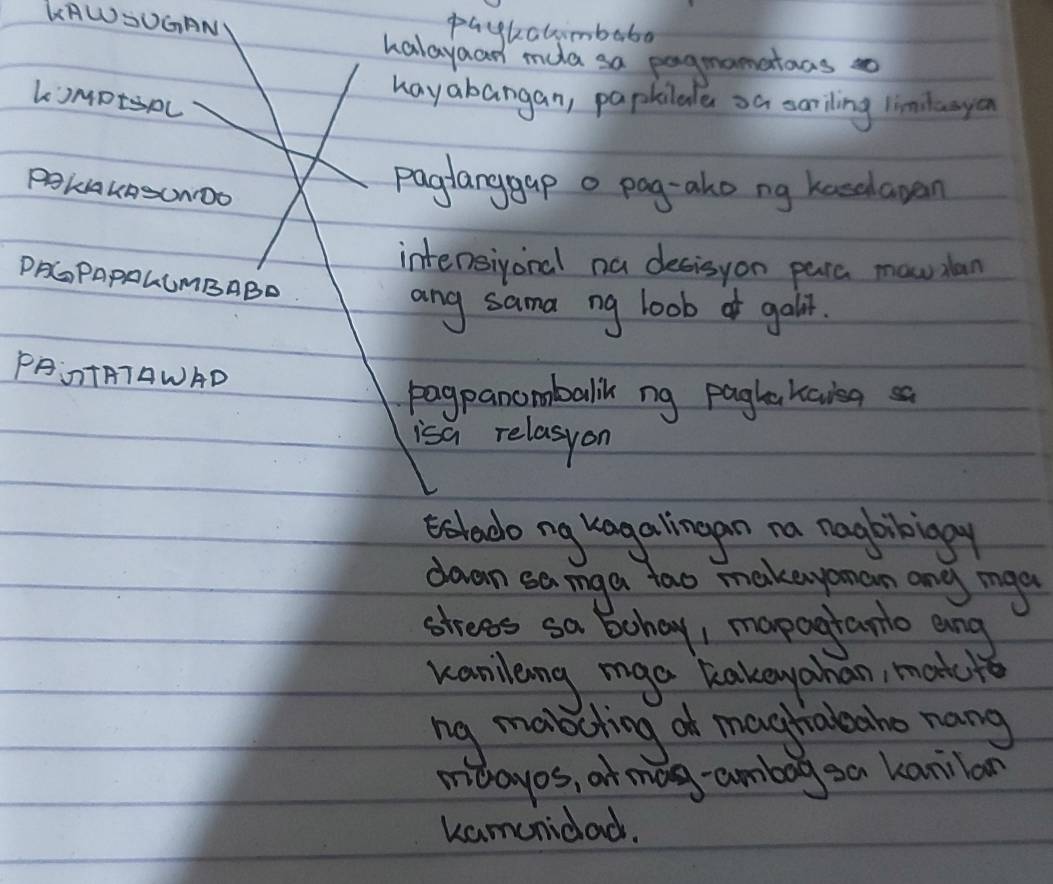 KAWSUGAN
KUMPISAL
PAKAKASUNDO
PAGPAPAKUMBABA
PAGTATAWAD
kalayaan mula sa pagmamataas o
kayabangan, sa sariling limitasyon
pagtanggap o pag-ako ng kasalanan
intensiyonal na desisyon para mawalan
ang sama ng loob at galit.
pagpanambalik ng pagkakaisa sa
isa relasyon
Estado ng kagalingan na nagbibigay
daan sa mga tao makayanan ang mga
stress sa buhay, mapagtanto ang
kanilang mga kakayahan, matuto
ng mabuting at magtrabaho nang
maayos, at mag-ambag sa kanilan
kamunidad.